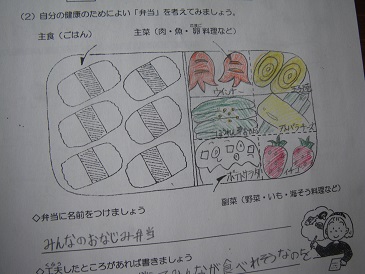 (2) 自分の健康のためによい「弁当」を考えてみましょう。
主食(ごはん)
主菜(肉・魚・卵料理など)
ウインナー
ポテトサラダ
イチゴ
副菜(野菜・いも・海そう料理など)
◇弁当に名前をつけましょう
みんなのおなじみ弁当
◇工夫したところがあれば書きましょう
みんなが食べれそうなのを